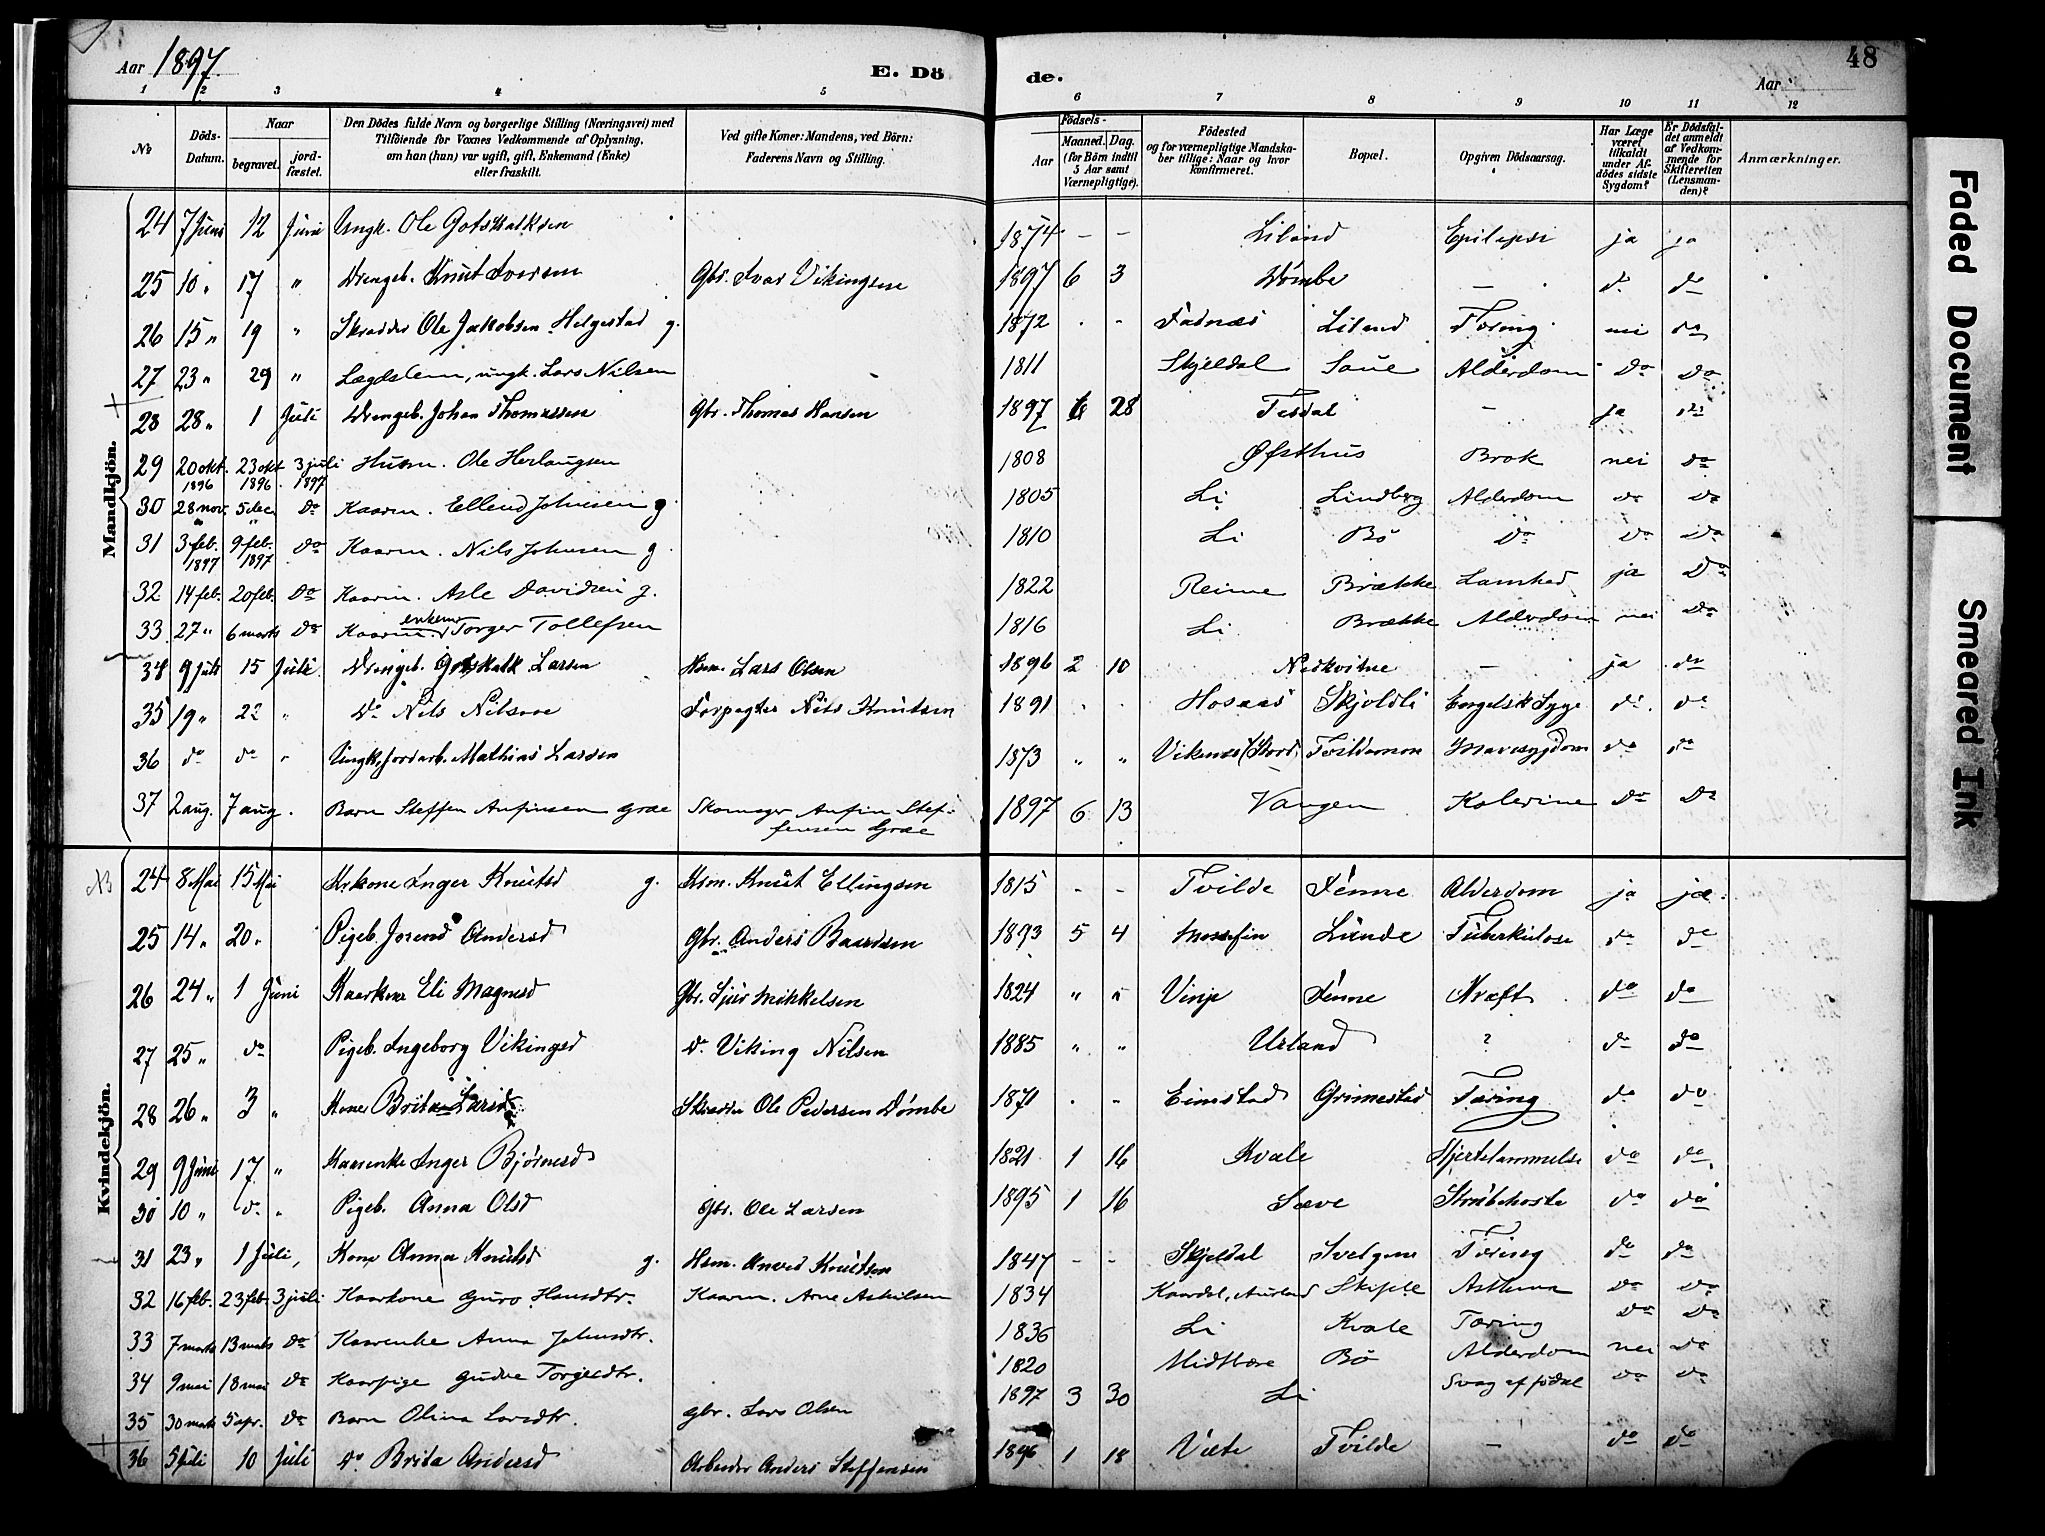 Aar 1897.
E. Dö
de.
Aar
48
1 2 3 4 5 6 7 8 9 10 11 12
No
Döds-Datum.
Naar
begravet.
jord-fæstet.
Den Dödes fulde Navn og borgerlige Stilling (Næringsvei) med
Tilföiende for Voxnes Vedkommende af Oplysning,
om han (hun) var ugift, gift, Enkemand (Enke)
eller fraskilt.
Ved gifte Koner: Mandens, ved Börn:
Faderens Navn og Stilling.
Födsels-
Aar
Maaned. Dag.
(for Börn indtil
5 Aar samt
Værnepligtige).
Födested
og for værnepligtige Mandska-
ber tillige: Naar og hvor
konfirmeret.
Bopæl.
Opgiven Dödsaarsag.
Har Læge
været
tilkaldt
under Af-
dödes sidste
Sygdom?
Er Dödsfal-
det anmeldt
af Vedkom-
mende for
Skifteretten
(Lensman-
den)?
Anmærkninger.
Mandkjön.
24 7 Juni 12 Juni Ungk. Ole Gotskalksen 1874 - - Liland Epilepsi ja ja
25 10 " 17 " Drengeb. Knut Ivarsen Gbr. Ivar Vikingsen 1897 6 3 Dømbe - do do
26 15 " 19 " Skrædder Ole Jakobsen Helgestad g. 1872 - - Fadnæs Liland Tæring nei do
27 23 " 29 " Lægdslem, ungk. Lars Nilsen 1811 Skjeldal Saue Alderdom do do
28 28 " 1 Juli Drengeb. Johan Thomassen Gbr. Thomas Hansen 1897 28 Tesdal - ja do
29 20 okt. 1896 23 okt 1896 3 juli 1897 Husm. Ole Herlaugsen 1808 Øfsthus Brok nei do
30 28 nov. " 5 dec. " do Kaarm. Ellend Johnsen g. 1805 Li Lindberg Alderdom do do
31 3 feb. 1897 9 feb. 1897 do Kaarm. Nils Johnsen g. 1810 Li Bö do do do
32 14 feb. 20 feb. do Kaarm. Asle Davidsen g. 1822 Reime Brække Lamhed ja do
33 27 " 6 marts do Kaarm. enkem. Torger Tollefsen 1816 Li Brække Alderdom nei do
34 9 Juli 15 Juli Drengeb. Gotskalk Larsen Hsm. Lars Olsen 1896 2 10 Nedkvitne - ja do
35 19 " 22 " do Nils Nilsson Forpagter Nils Knutsen 1891 - - Hosaas Skjoldli Engelsk Syge do. do
36 do do " Ungk. Jordarb. Mathias Larsen 1873 " " Vikenes (Stord) Tvildemoen Mavesygdom do do
37 2 aug. 7 aug. Barn Steffen Anfinsen Grae Skomager Anfin Stef-
fensen Grae 1897 6 13 Vangen Kolerine do do
Kvindekjön.
NB 24 8 Mai 15 Mai Krkone Inger Knutsd g. Krm. Knut Ellingsen 1815 - - Tvilde Fenne Alderdom ja ja.
25 14 " 20 " Pigeb. Jorend Andersd Gbr. Anders Baardsen 1893 5 4 Lunde Tuberkulose do do
26 24 " 1 Juni Kaarkone Eli Magnesd Gbr. Sjur Mikkelsen 1824 " " Vinje Fenne Kræft do do
27 25 " do Pigeb. Ingeborg Vikingsd do Viking Nilsen 1885 " " Urland ? do do
28 26 " 3 " Kone Brita Larsd Skrædder Ole Pedersen Dømbe 1871 - - Eimstad Grimestad Tæring do do
29 9 Juni 17 " Kaarenke Inger Bjørnesd 1821 1 16 Kvale Hjertelammelse do do
30 10 " do " Pigeb. Anna Olsd Gbr. Ole Larsen 1895 1 16 Sæve Strubehoste do do
31 23 " 1 Juli, Kone Anna Knutsd g. Hsm. Anved Knutsen 1847 - - Skjeldal Tæring do do
32 16 feb. 23 feb. 3 juli Kaarkone Guro Hansdtr. Kaarm. Arne Askilsen 1834 Kaardal, Aurland Skiple Asthma do do
33 7 marts 13 marts do Kaarenke Anna Johnsdtr. 1836 Li Kvale Tæring do do
34 9 mai 18 mai do Kaarpige Gudve Torgersdtr. 1820 Midtbære Bö Alderdom nei do
35 30 marts 5 apr. do Barn Olina Larsdtr. gbr. Lars Olsen 1897 3 30 Li Svag af födsel do do
36 5 Juli 10 Juli do Brita Andersd Arbeider Anders Steffensen 1896 1 18 Væte Tvilde - do do
Faded Document
Smeared Ink